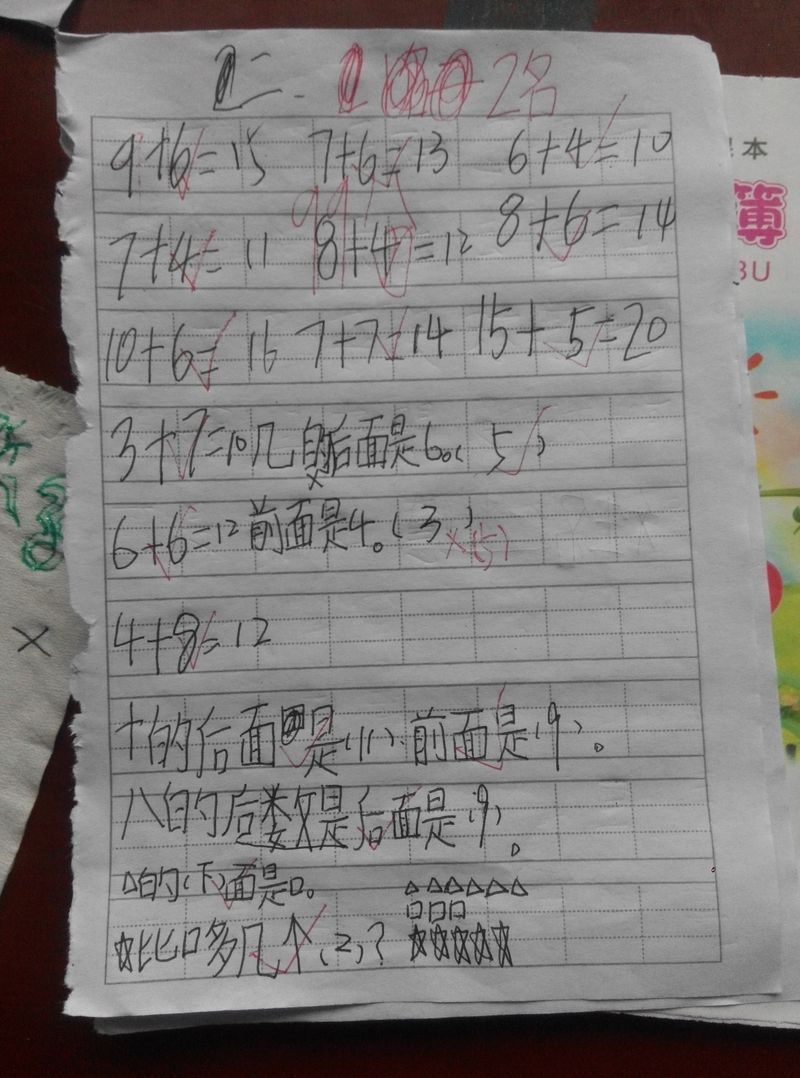 二. 2名
9+6=15 7+6=13 6+4=10
99
7+4=11 8+4=12 8+6=14
10+6=16 7+7=14 15+5=20
3+7=10 几的后面是6。(5)
6+6=12 前面是4。(3) ×(5)
4+8=12
十的后面是(11)、前面是(9)。
八的后数是后面是(9)。
△的(下)面是□。 △△△△△△
□□□
☆比口多几个(2)? ☆☆☆☆☆
本
簿
BU
×